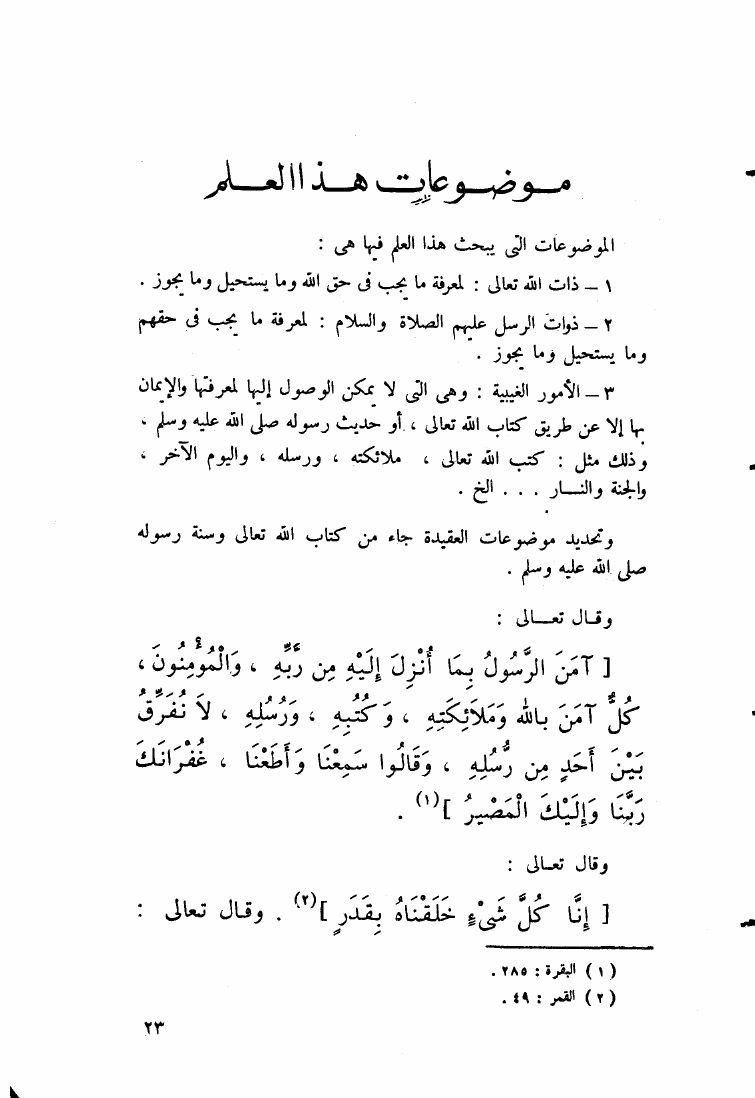 موضوعات هذا العلم
الموضوعات التى يبحث هذا العلم فيها هى :
١ – ذات الله تعالى : لمعرفة ما يجب فى حق الله وما يستحيل وما يجوز .
٢ – ذوات الرسل عليهم الصلاة والسلام : لمعرفة ما يجب فى حقهم
وما يستحيل وما يجوز .
٣ – الأمور الغيبية : وهى التى لا يمكن الوصول إليها لمعرفتها والإيمان
بها إلا عن طريق كتاب الله تعالى ، أو حديث رسوله صلى الله عليه وسلم ،
وذلك مثل : كتب الله تعالى ، ملائكته ، ورسله ، واليوم الآخر ،
والجنة والنــار . . . الخ .
وتحديد موضوعات العقيدة جاء من كتاب الله تعالى وسنة رسوله
صلى الله عليه وسلم .
وقال تعــالى :
[ آمَنَ الرَّسُولُ بِمَا أُنْزِلَ إِلَيْهِ مِن رَبِّهِ ، وَالْمُؤْمِنُونَ ،
كُلٌّ آمَنَ بالله وَمَلاَئِكَتِهِ ، وَكُتُبِهِ ، وَرُسُلِهِ ، لاَ نُفَرِّقُ
بَيْنَ أَحَدٍ مِن رُّسُلِهِ ، وَقَالُوا سَمِعْنَا وَأَطَعْنَا ، غُفْرَانَكَ
رَبَّنَا وَإِلَيْكَ الْمَصْيرُ ](١) .
وقال تعـالى :
[ إِنَّا كُلَّ شَىْءٍ خَلَقْنَاهُ بِقَدَرٍ ](٢) . وقال تعالى :
(١) البقرة : ٢٨٥ .
(٢) القمر : ٤٩ .
٢٣